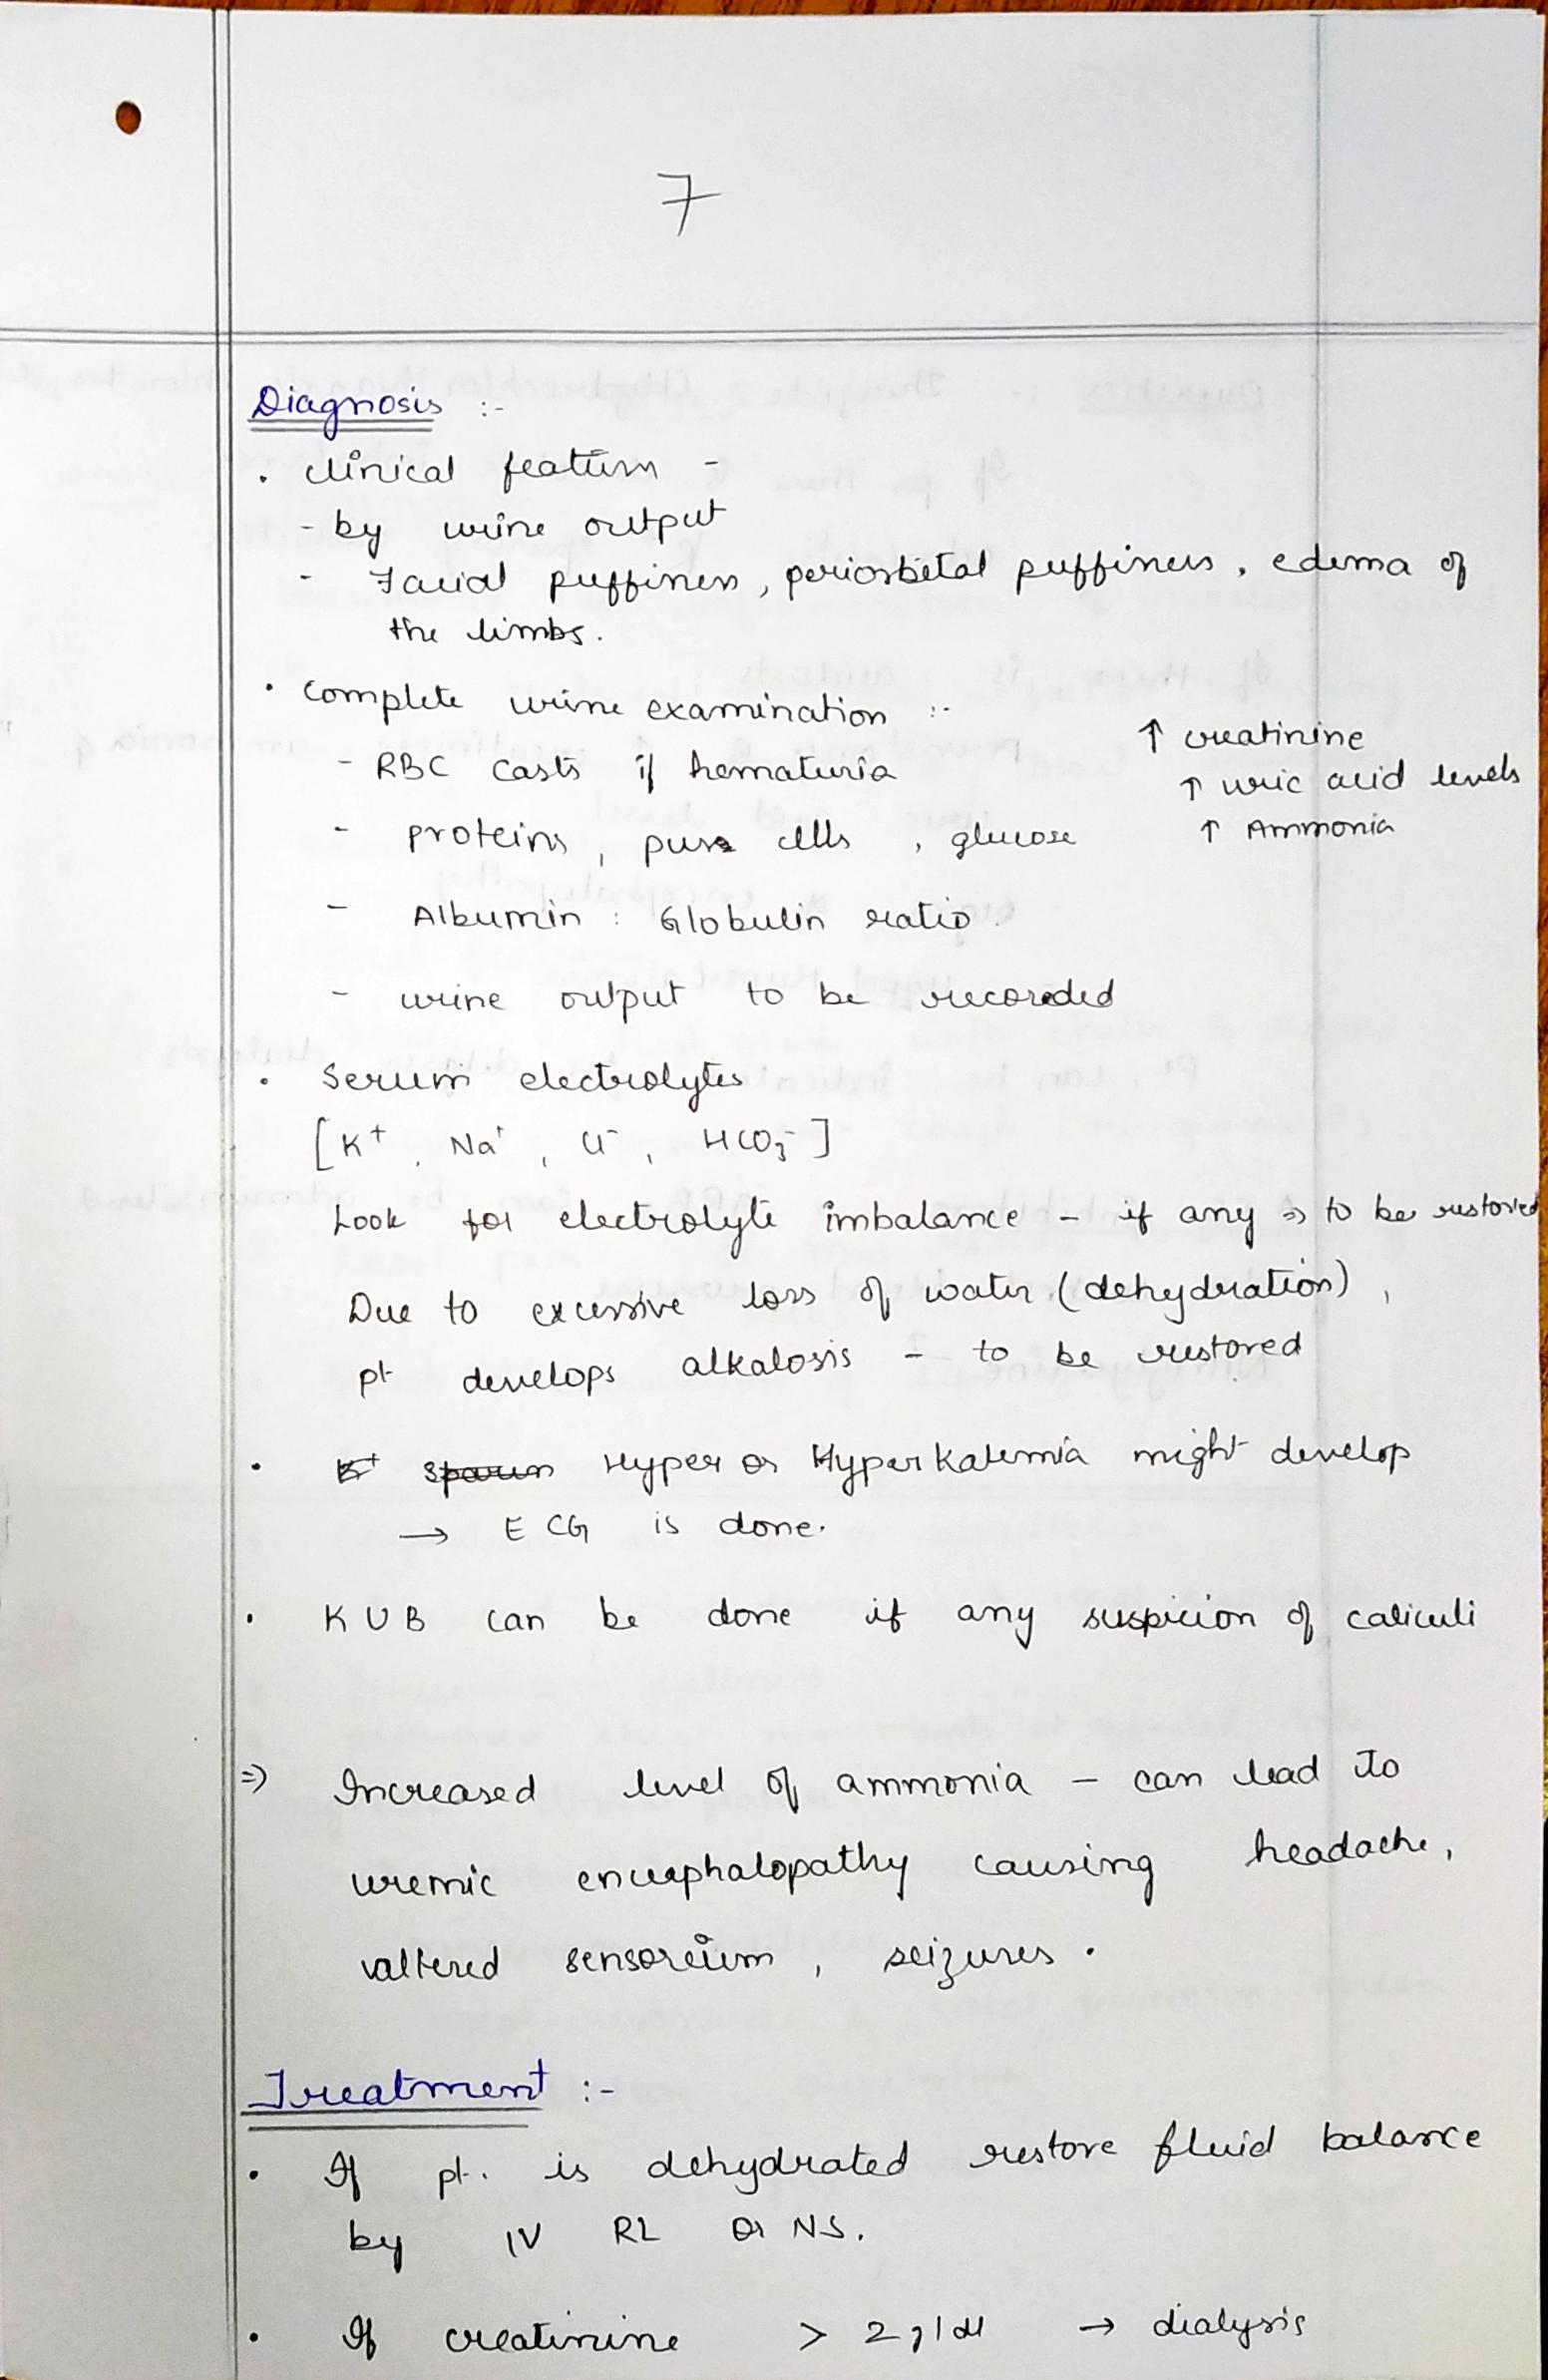 7
Diagnosis :-
. clinical feature -
- by urine output
- Facial puffiness, periorbital puffiness, edema of
the limbs.
• complete urine examination :-
↑ creatinine
- RBC casts if hematuria
↑ uric acid levels
- proteins, pus cells, glucose
↑ Ammonia
- Albumin : Globulin ratio
- urine output to be recorded
• Serum electrolytes
[K⁺, Na⁺, Cl⁻, HCO₃⁻]
Look for electrolyte imbalance - if any ⇒ to be restored
Due to excessive loss of water (dehydration),
pt develops alkalosis - to be restored
• Hyper or Hyperkalemia might develop
→ ECG is done.
• KUB can be done if any suspicion of caliculi
⇒ Increased level of ammonia - can lead to
uremic encephalopathy causing headache,
altered sensoreium, seizures.
Treatment :-
• If pt. is dehydrated restore fluid balance
by IV RL or NS.
• If creatinine > 2 g/dl → dialysis